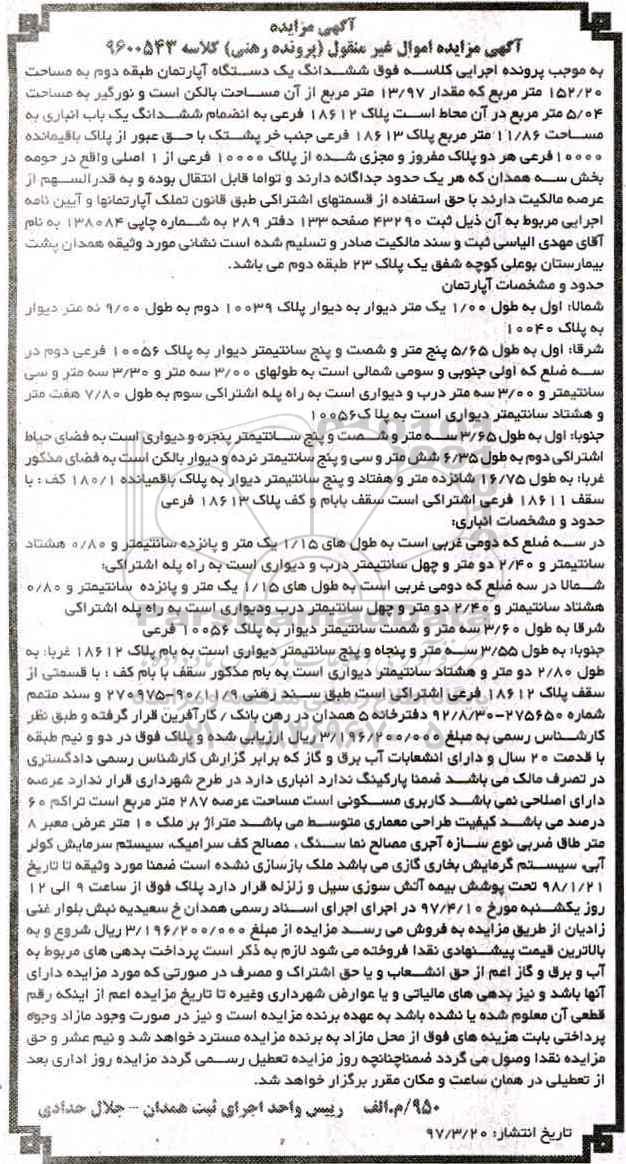 آگهی مزایده
آگهی مزایده اموال غیر منقول (پرونده رهنی) کلاسه ۹۶۰۰۵۴۳
به موجب پرونده اجرایی کلاسه فوق ششدانگ یک دستگاه آپارتمان طبقه دوم به مساحت
۱۵۲/۲۰ متر مربع که مقدار ۱۳/۹۷ متر مربع از آن مساحت بالکن است و نورگیر به مساحت
۵/۰۴ متر مربع در آن محاط است پلاک ۱۸۶۱۲ فرعی به انضمام ششدانگ یک باب انباری به
مساحت ۱۱/۸۶ متر مربع پلاک ۱۸۶۱۳ فرعی جنب خر پشتک با حق عبور از پلاک باقیمانده
۱۰۰۰۰فرعی هر دو پلاک مفروز و مجزی شده از پلاک ۱۰۰۰۰ فرعی از ۱ اصلی واقع در حومه
بخش سه همدان که هر یک حدود جداگانه دارند و تواما قابل انتقال بوده و به قدرالسهم از
عرصه مالکیت دارند با حق استفاده از قسمتهای اشتراکی طبق قانون تملک آپارتمانها و آیین نامه
اجرایی مربوط به آن ذیل ثبت ۴۳۲۹۰ صفحه ۱۳۳ دفتر ۲۸۹ به شماره چاپی ۱۳۸۰۸۴ به نام
آقای مهدی الیاسی ثبت و سند مالکیت صادر و تسلیم شده است نشانی مورد وثیقه همدان پشت
بیمارستان بوعلی کوچه شفق یک پلاک ۲۳ طبقه دوم می باشد.
حدود و مشخصات آپارتمان
شمالا: اول به طول ۱/۰۰ یک متر دیوار به دیوار پلاک ۱۰۰۳۹ دوم به طول ۹/۰۰ نه متر دیوار
به پلاک ۱۰۰۴۰
شرقا: اول به طول ۵/۶۵ پنج متر و شصت و پنج سانتیمتر دیوار به پلاک ۱۰۰۵۶ فرعی دوم در
سه ضلع که اولی جنوبی و سومی شمالی است به طولهای ۳/۰۰ سه متر و ۳/۳۰ سه متر و سی
سانتیمتر و ۳/۰۰ سه متر درب و دیواری است به راه پله اشتراکی سوم به طول ۷/۸۰ هفت متر
و هشتاد سانتیمتر دیواری است به پلا ک۱۰۰۵۶
جنوبا: اول به طول ۳/۶۵ سه متر و شصت و پنج سانتیمتر پنجره و دیواری است به فضای حیاط
اشتراکی دوم به طول ۶/۳۵ شش متر و سی و پنج سانتیمتر نرده و دیوار بالکن است به فضای مذکور
غربا: به طول ۱۶/۷۵ شانزده متر و هفتاد و پنج سانتیمتر دیوار به پلاک باقمیانده ۱۸۰/۱ کف : با
سقف ۱۸۶۱۱ فرعی اشتراکی است سقف بابام و کف پلاک ۱۸۶۱۳ فرعی
حدود و مشخصات انباری:
در سه ضلع که دومی غربی است به طول های ۱/۱۵ یک متر و پانزده سانتیمتر و ۰/۸۰ هشتاد
سانتیمتر و ۲/۴۰ دو متر و چهل سانتیمتر درب و دیواری است به راه پله اشتراکی:
شمالا در سه ضلع که دومی غربی است به طول های ۱/۱۵ یک متر و پانزده سانتیمتر و ۰/۸۰
هشتاد سانتیمتر و ۲/۴۰ دو متر و چهل سانتیمتر درب ودیواری است به راه پله اشتراکی
شرقا به طول ۳/۶۰ سه متر و شصت سانتیمتر دیوار به پلاک ۱۰۰۵۶ فرعی
جنوبا: به طول ۳/۵۵ سه متر و پنجاه و پنج سانتیمتر دیواری است به بام پلاک ۱۸۶۱۲ غربا: به
طول ۲/۸۰ دو متر و هشتاد سانتیمتر دیواری است به بام مذکور سقف با بام کف : با قسمتی از
سقف پلاک ۱۸۶۱۲ فرعی اشتراکی است طبق سند رهنی ۹۰/۱۱/۹-۲۷۰۹۷۵ و سند متمم
شماره ۲۷۵۶۵۰-۹۲/۸/۳۰ دفترخانه ۵ همدان در رهن بانک / کارآفرین قرار گرفته و طبق نظر
کارشناس رسمی به مبلغ ۳/۱۹۶/۲۰۰/۰۰۰ریال ارزیابی شده و پلاک فوق در دو و نیم طبقه
با قدمت ۲۰ سال و دارای انشعابات آب برق و گاز که برابر گزارش کارشناس رسمی دادگستری
در تصرف مالک می باشد ضمنا پارکینگ ندارد انباری دارد در طرح شهرداری قرار ندارد عرصه
دارای اصلاحی نمی باشد کاربری مسکونی است مساحت عرصه ۲۸۷ متر مربع است تراکم ۶۰
درصد می باشد کیفیت طراحی معماری متوسط می باشد متراژ بر ملک ۱۰ متر عرض معبر ۸
متر طاق ضربی نوع سازه آجری مصالح نما سنگ ، مصالح کف سرامیک، سیستم سرمایش کولر
آبی، سیستم گرمایش بخاری گازی می باشد ملک بازسازی نشده است ضمنا مورد وثیقه تا تاریخ
۹۸/۱/۲۱ تحت پوشش بیمه آتش سوزی سیل و زلزله قرار دارد پلاک فوق از ساعت ۹ الی ۱۲
روز یکشنبه مورخ ۹۷/۴/۱۰ در اجرای اجرای اسناد رسمی همدان خ سعیدیه نبش بلوار غنی
زادیان از طریق مزایده به فروش می رسد مزایده از مبلغ ۳/۱۹۶/۲۰۰/۰۰۰ ریال شروع و به
بالاترین قیمت پیشنهادی نقدا فروخته می شود لازم به ذکر است پرداخت بدهی های مربوط به
آب و برق و گاز اعم از حق انشعاب و یا حق اشتراک و مصرف در صورتی که مورد مزایده دارای
آنها باشد و نیز بدهی های مالیاتی و یا عوارض شهرداری وغیره تا تاریخ مزایده اعم از اینکه رقم
قطعی آن معلوم شده یا نشده باشد به عهده برنده مزایده است و نیز در صورت وجود مازاد وجوه
پرداختی بابت هزینه های فوق از محل مازاد به برنده مزایده مسترد خواهد شد و نیم عشر و حق
مزایده نقدا وصول می گردد ضمناچنانچه روز مزایده تعطیل رسمی گردد مزایده روز اداری بعد
از تعطیلی در همان ساعت و مکان مقرر برگزار خواهد شد.
۹۵۰/م.الف رییس واحد اجرای ثبت همدان – جلال حدادی
تاریخ انتشار: ۹۷/۳/۲۰
ParsNamadData